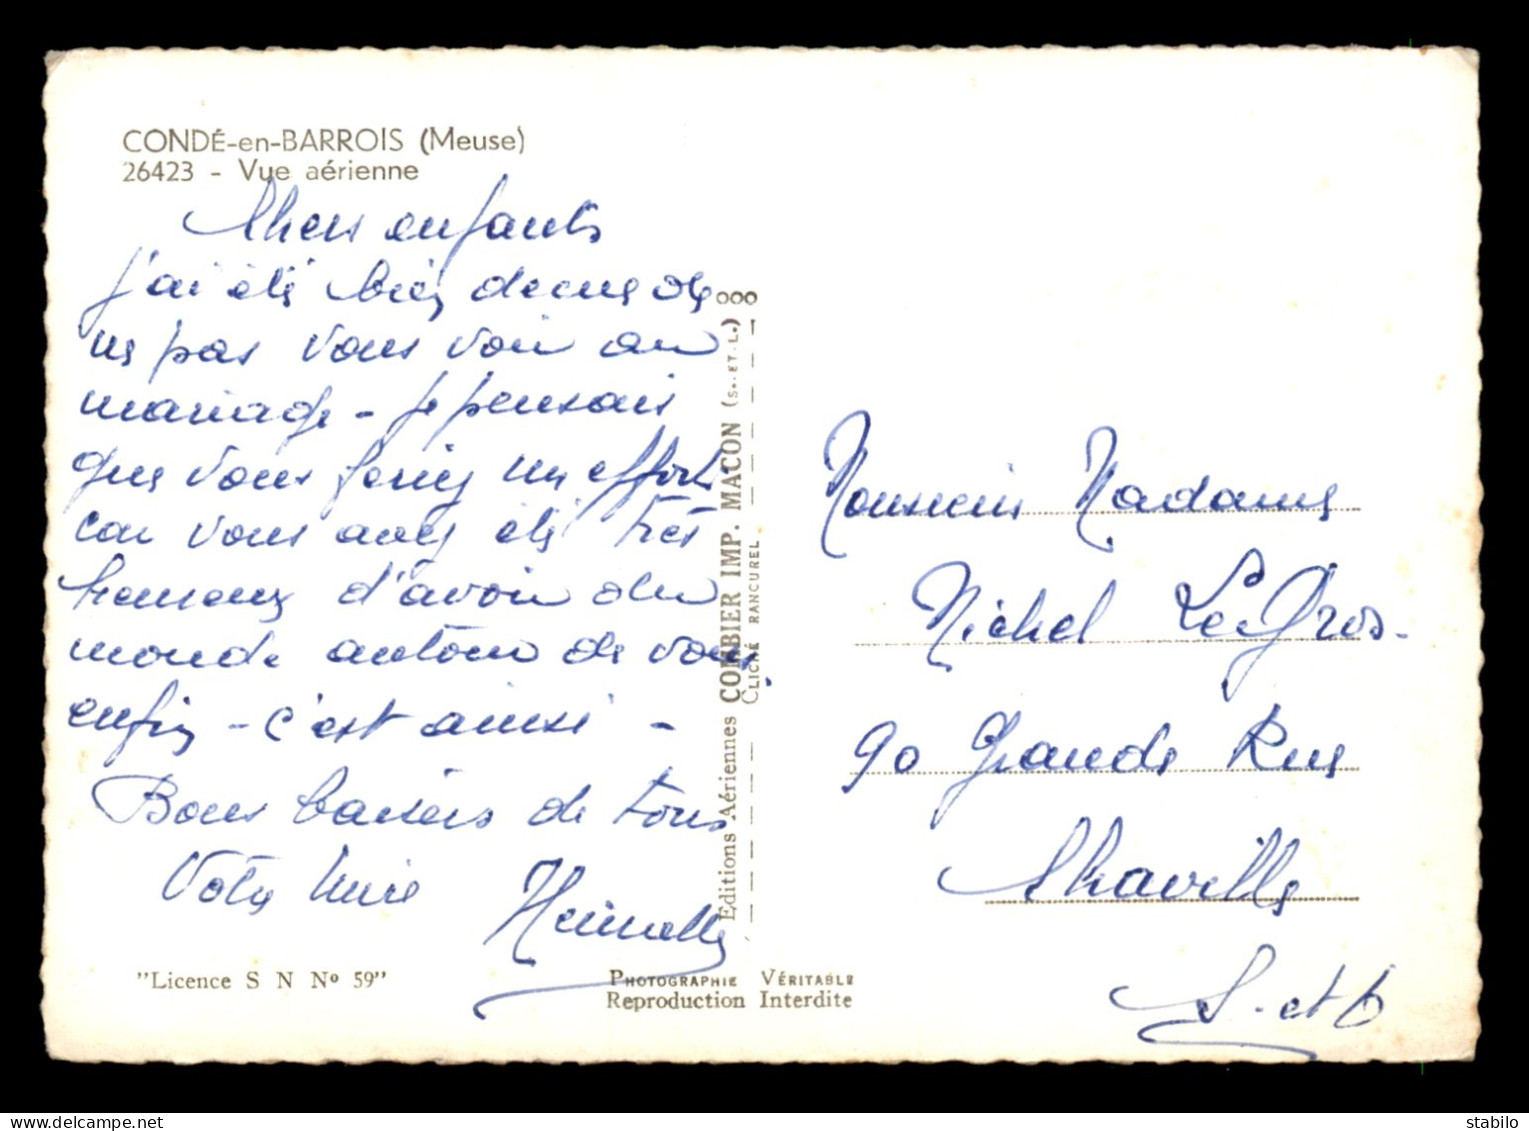 CONDÉ-en-BARROIS (Meuse)
26423 - Vue aérienne
Chers enfants
j'ai été bien déçue de
ne pas vous voir au
mariage - je pensais
que vous feriez un effort
car vous avez été très
heureux d'avoir du
monde autour de vous
enfin - c'est ainsi -
Bons baisers de tous
Votre
"Licence S N Nº 59"
Editions Aériennes COMBIER IMP. MACON (S.-ET-L.)
CLICHÉ RANCUREL
PHOTOGRAPHIE VÉRITABLE
Reproduction Interdite
Monsieur Madame
Michel LeGros
90 Grande Rue
Chaville
S. et O
stabilo